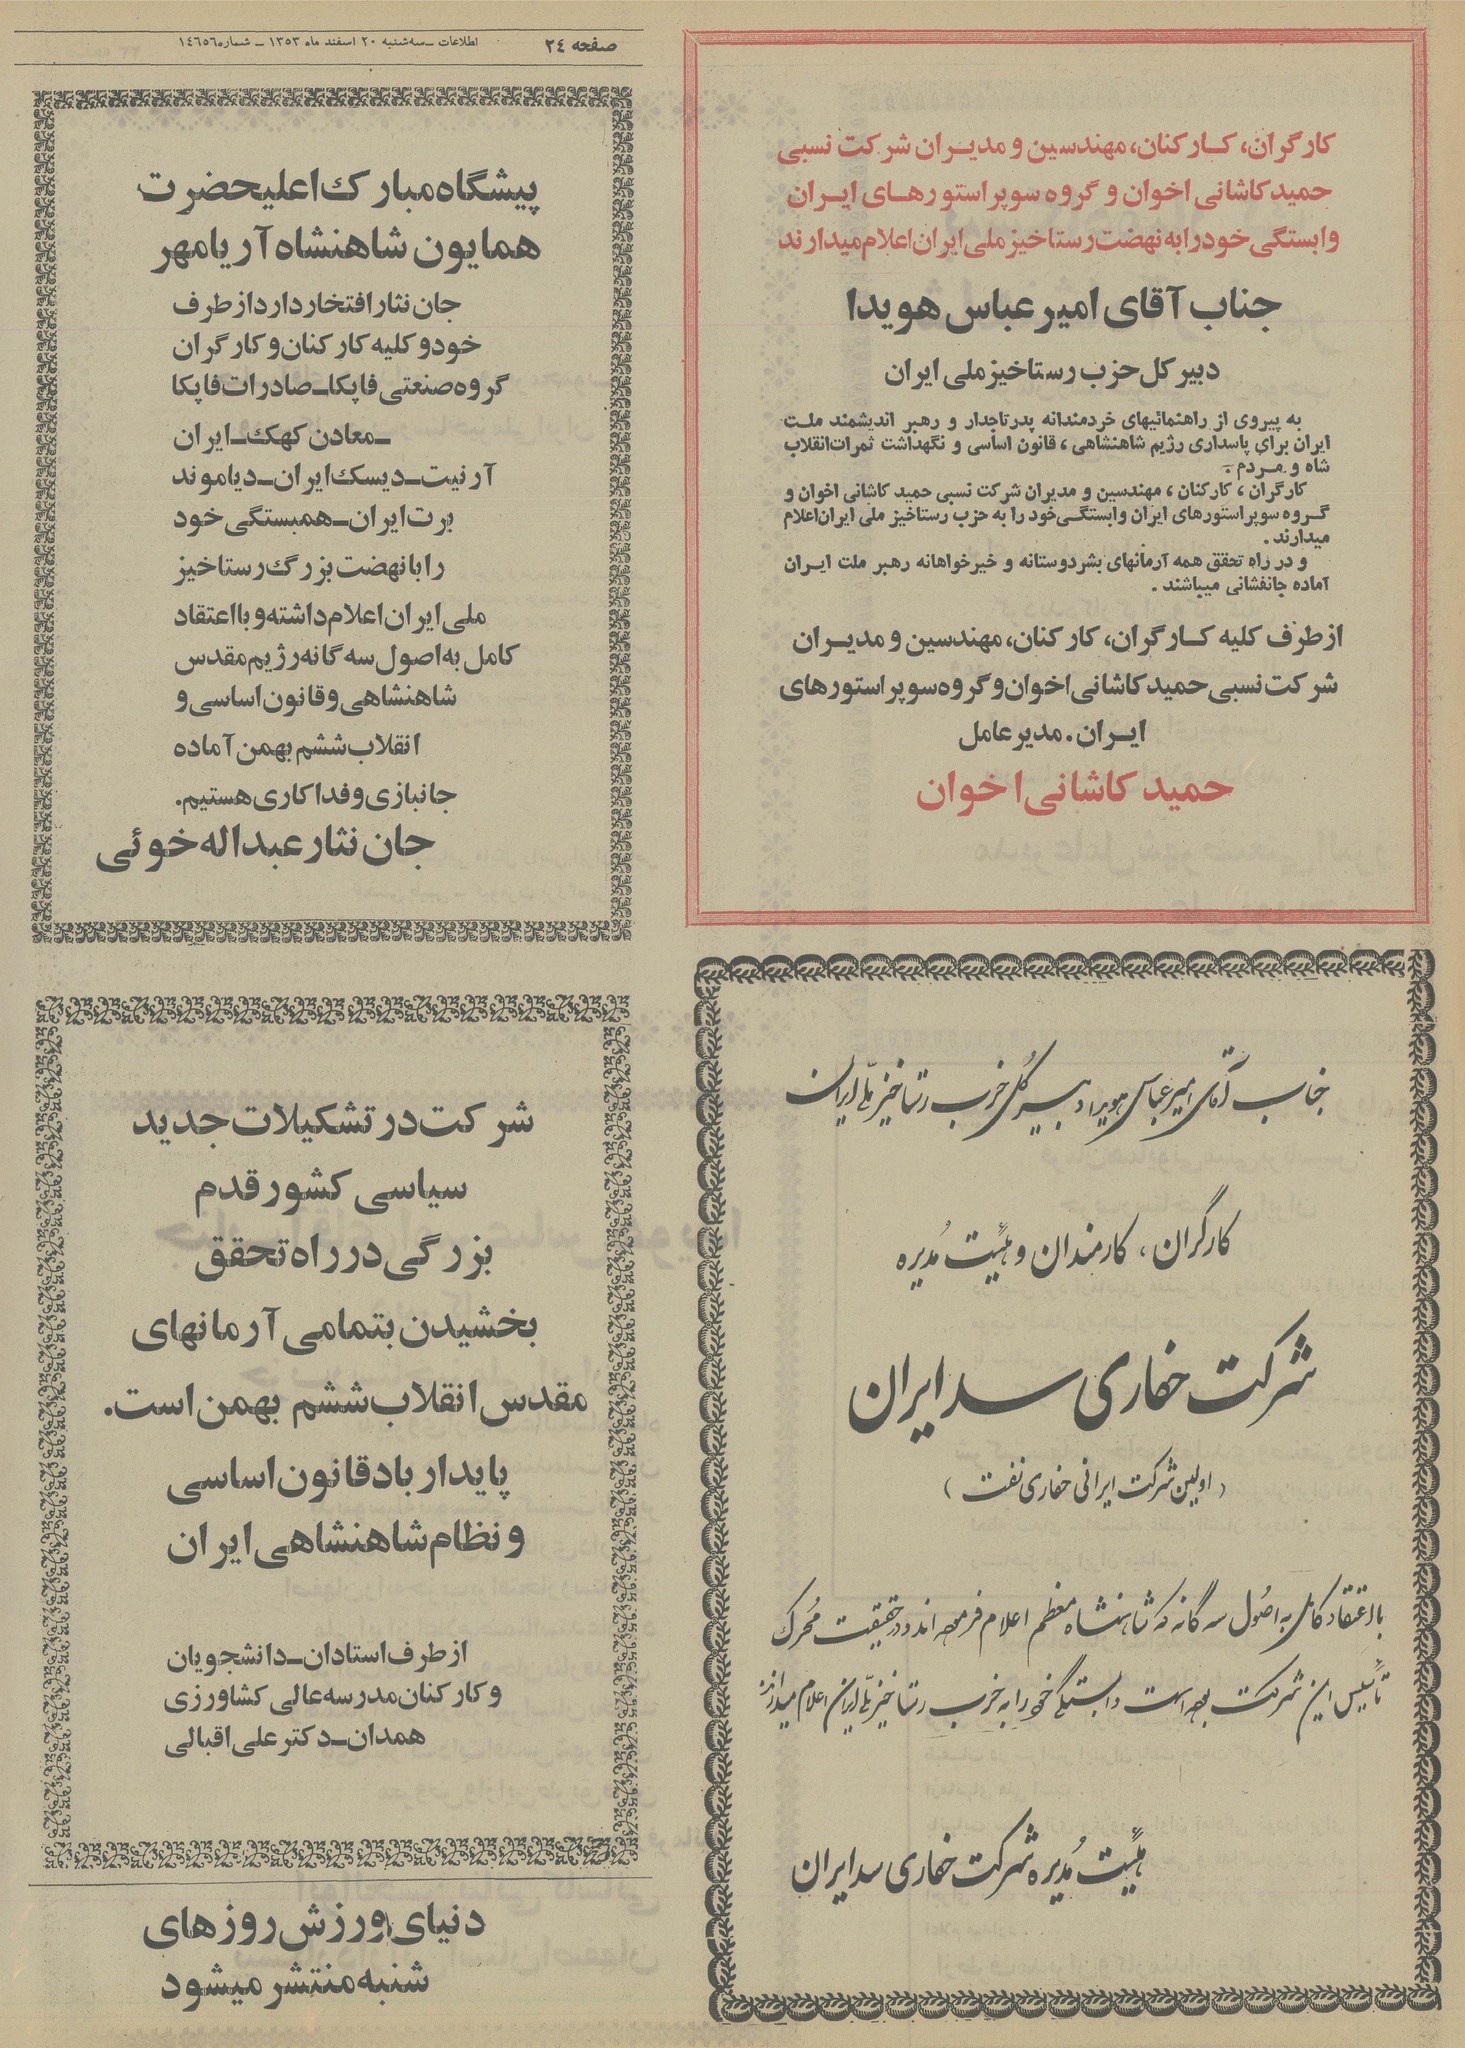 صفحه ۲۴
اطلاعات ـ سه‌شنبه ۲۰ اسفند ماه ۱۳۵۳ ـ شماره ۱۴۶۵۶
کارگران، کارکنان، مهندسین و مدیران شرکت نسبی
حمید کاشانی اخوان و گروه سوپر استورهای ایران
وابستگی خود را به نهضت رستاخیز ملی ایران اعلام میدارند
جناب آقای امیر عباس هویدا
دبیر کل حزب رستاخیز ملی ایران
به پیروی از راهنمائیهای خردمندانه پدر تاجدار و رهبر اندیشمند ملت
ایران برای پاسداری رژیم شاهنشاهی، قانون اساسی و نگهداشت ثمرات انقلاب
شاه و مردم .
کارگران، کارکنان، مهندسین و مدیران شرکت نسبی حمید کاشانی اخوان و
گروه سوپر استورهای ایران وابستگی خود را به حزب رستاخیز ملی ایران اعلام
میدارند .
و در راه تحقق همه آرمانهای بشردوستانه و خیرخواهانه رهبر ملت ایران
آماده جانفشانی میباشند .
از طرف کلیه کارگران، کارکنان، مهندسین و مدیران
شرکت نسبی حمید کاشانی اخوان و گروه سوپر استورهای
ایران . مدیر عامل
حمید کاشانی اخوان
پیشگاه مبارک اعلیحضرت
همایون شاهنشاه آریامهر
جان نثار افتخار دارد از طرف
خود و کلیه کارکنان و کارگران
گروه صنعتی فاپکا ـ صادرات فاپکا
ـ معادن کهک ـ ایران
آرنیت ـ دیسک ایران ـ دیاموند
برت ایران ـ همبستگی خود
را با نهضت بزرگ رستاخیز
ملی ایران اعلام داشته و با اعتقاد
کامل به اصول سه گانه رژیم مقدس
شاهنشاهی و قانون اساسی و
انقلاب ششم بهمن آماده
جانبازی و فداکاری هستیم.
جان نثار عبداله خوئی
جناب آقای امیر عباس هویدا دبیر کل حزب رستاخیز ملّی ایران
کارگران، کارمندان و هیئت مُدیره
شرکت حفاری سد ایران
( اولین شرکت ایرانی حفاری نفت )
با اعتقاد کامل به اصُول سه گانه که شاهنشاه معظم اعلام فرموده اند و در حقیقت مُحرک
تأسیس این شرکت بوده است وابستگی خود را به حزب رستاخیز ملّی ایران اعلام میدارند.
هیئت مُدیره شرکت حفاری سد ایران
شرکت در تشکیلات جدید
سیاسی کشور قدم
بزرگی در راه تحقق
بخشیدن بتمامی آرمانهای
مقدس انقلاب ششم بهمن است.
پایدار باد قانون اساسی
و نظام شاهنشاهی ایران
از طرف استادان ـ دانشجویان
و کارکنان مدرسه عالی کشاورزی
همدان ـ دکتر علی اقبالی
دنیای ورزش روزهای
شنبه منتشر میشود